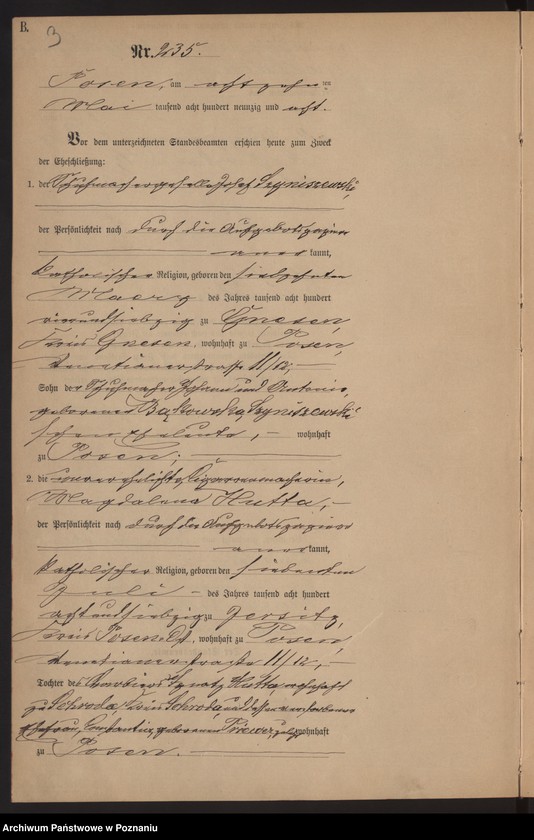 B.
3
Nr. 235.
Posen, am achtzehnten
Mai tausend acht hundert neunzig und acht.
Vor dem unterzeichneten Standesbeamten erschien heute zum Zweck
der Eheschließung:
1. der Schuhmachergeselle Josef Szyniszewski,
der Persönlichkeit nach durch die Aufgebotspapiere
anerkannt,
katholischer Religion, geboren den siebzehnten
Maerz des Jahres tausend acht hundert
vierundsiebzig zu Gnesen,
Kreis Gnesen, wohnhaft zu Posen,
Venetianerstrasse 11/12,
Sohn der Schuhmacher Johann und Antonie,
geborenen Bąkowska, Szyniszewski
schen Eheleute, wohnhaft
zu Posen;
2. die unverehelichte Cigarrenmacherin,
Magdalena Hutta,
der Persönlichkeit nach durch die Aufgebotspapiere
anerkannt,
katholischer Religion, geboren den siebenten
Juli des Jahres tausend acht hundert
achtundsiebzig zu Jersitz,
Kreis Posen Ost, wohnhaft zu Posen,
Venetianerstrasse 11/12,
Tochter des Barbiers Ignatz Hutta, wohnhaft
zu Schroda, Kreis Schroda, und dessen verstorbenen
Ehefrau, Constantia, geborenen Priewer, wohnhaft
zu Posen.
Archiwum Państwowe w Poznaniu